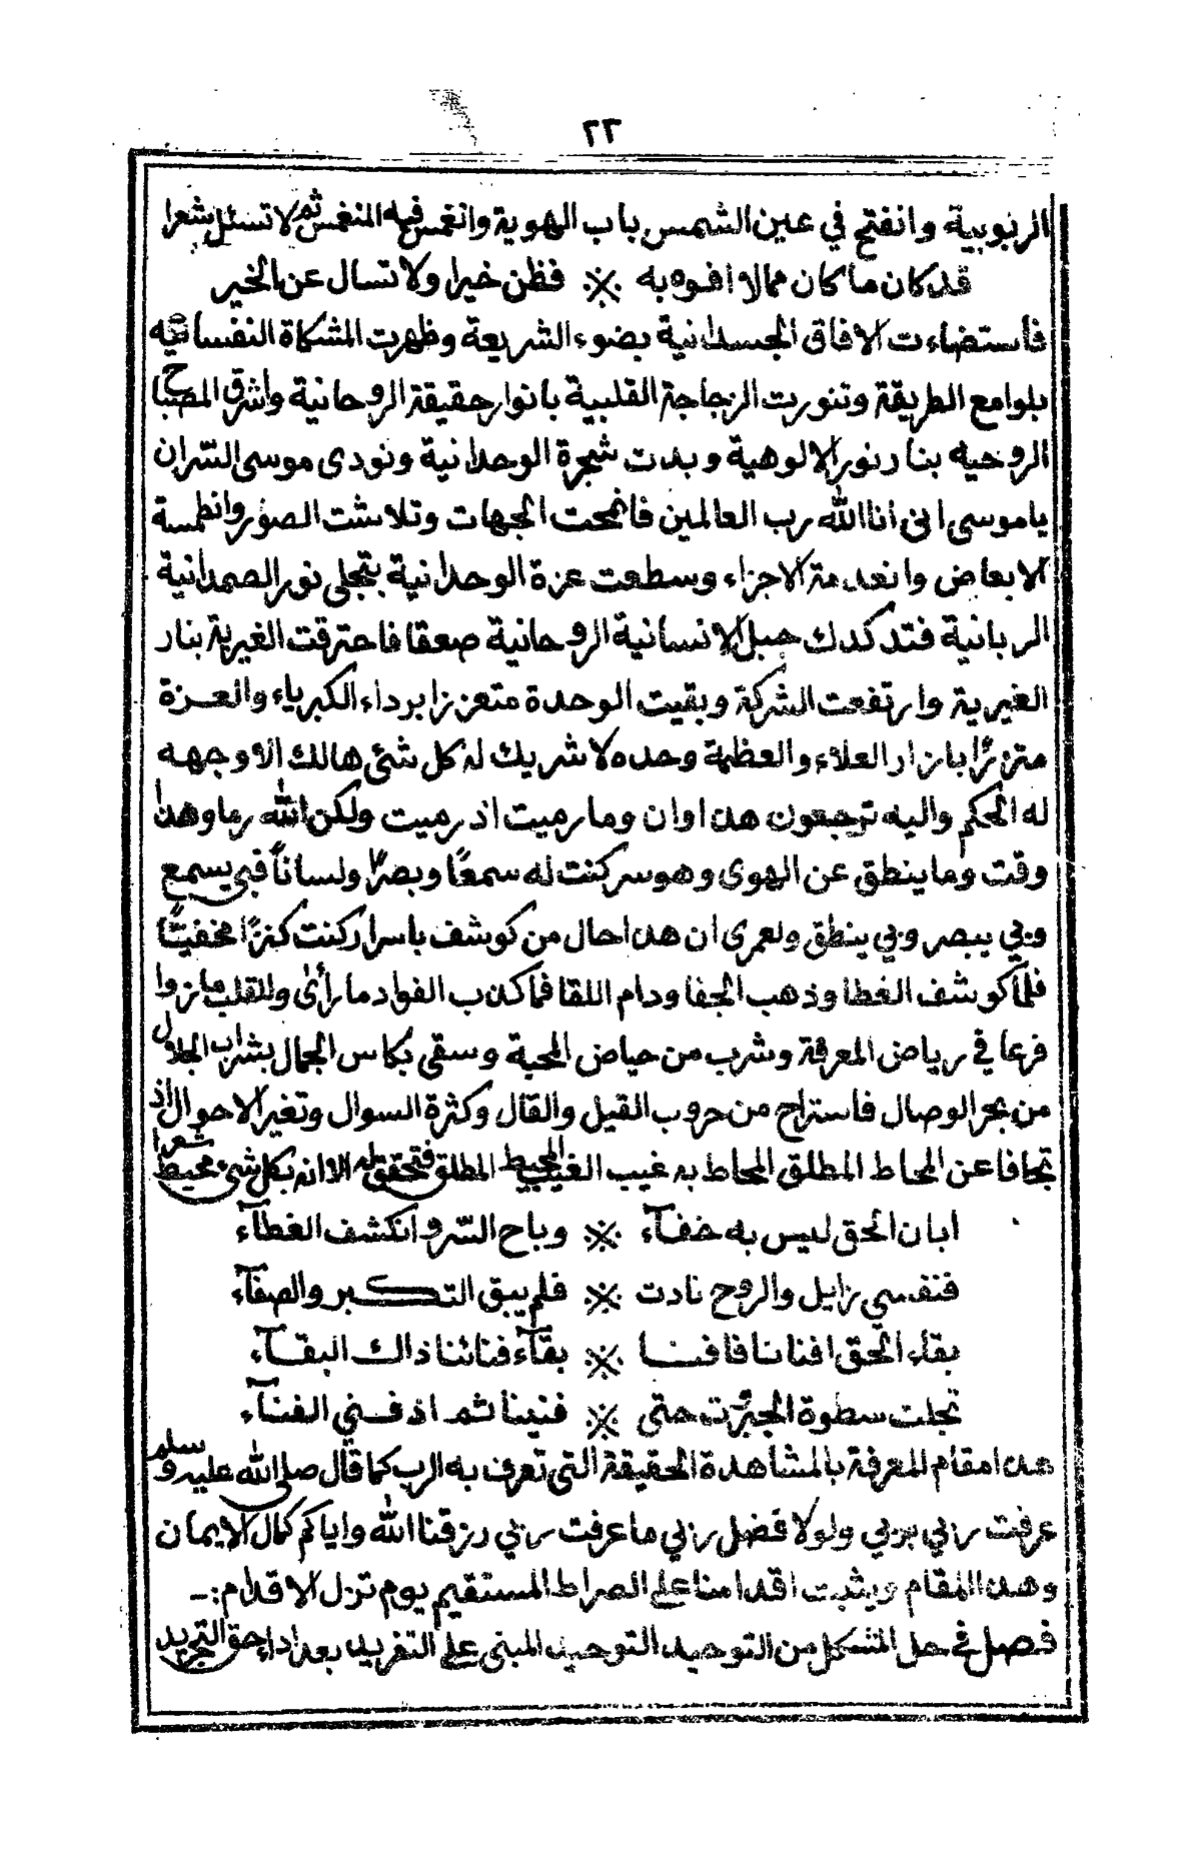 ٢٣
الربوبية وانفتح في عين الشمس باب الهوية وانغمس فيه المنغمس ثم لا تسئل شعرا
قد كان ما كان مما لا افوه به ※ فظن خيرا ولا تسال عن الخير
فاستضاءت الافاق الجسدانية بضوء الشريعة وظهرت المشكاة النفسانية
بلوامع الطريقة وتنورت الزجاجة القلبية بانوار حقيقة الروحانية واشرق المصباح
الروحيه بنار نور الالوهية وبدت شجرة الوحدانية ونودى موسى السّر ان
ياموسى انى انا الله رب العالمين فانمحت الجهات وتلاشت الصور وانطمسة
الابعاض وانعدمة الاجزاء وسطعت عزة الوحدانية بتجلى نور الصمدانية
الربانية فتدكدك جبل الانسانية الروحانية صعقا فاحترقت الغيرية بنار
الغيرية وارتفعت الشركة وبقيت الوحدة متعززا برداء الكبرياء والعزة
متزئرًا بازار العلاء والعظمة وحده لا شريك له كل شئ هالك الا وجهه
له الحكم واليه ترجعون هذا اوان وما رميت اذ رميت ولكن الله رما وهذا
وقت وما ينطق عن الهوى وهو سر كنت له سمعًا وبصرًا ولسانًا فبى يسمع
وبي يبصر وبي ينطق ولعمرى ان هذا حال من كوشف باسرار كنت كنزًا مخفيًا
فلما كوشف الغطا وذهب الجفا ودام اللقا فما كذب الفواد ما رأى وللقلب ما نزوا
فرعا في رياض المعرفة وشرب من حياض المحبة وسقى بكاس الجمال بشراب الجلال
من بحر الوصال فاستراح من حروب القيل والقال وكثرة السوال وتغير الاحوال اذ
تجافا عن المحاط المطلق المحاط به غيب الغيب المحيط المطلق فتحقق له الا انه بكل شئ محيط شعرا
ابان الحق ليس به خفآء ※ وباح السّر وانكشف الغطآء
فنفسي زايل والروح نادت ※ فلم يبق التكبر والصفآء
بقاء الحق افنانا فافنا ※ بقآء فنائنا ذاك البقآء
تجلت سطوة الجبروت حتى ※ فنينا ثم اذ فني الفنآء
هذا مقام المعرفة بالمشاهدة الحقيقة التى تعرف به الرب كما قال صلى الله عليه وسلم
عرفت ربي بربي ولولا فضل ربي ما عرفت ربي رزقنا الله واياكم كمال الايمان
وهذا المقام ويثبت اقدامنا على الصراط المستقيم يوم تزل الاقدام :ـ
فصل في حل المشكل من التوحيد التوحيد المبنى على التفريد بعد اداء حق التجريد